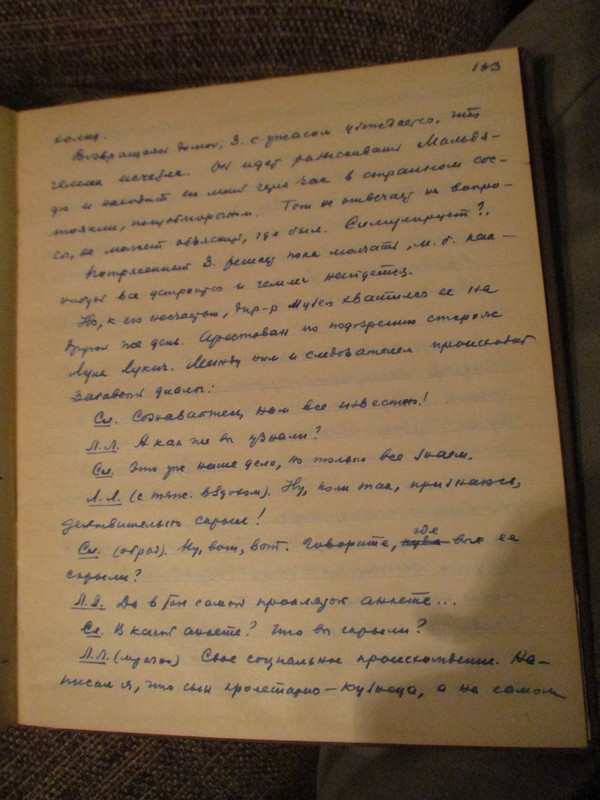 163
Возвращаясь домой, З. с ужасом убеждается, что
исчезла. Он идет разыскивать
и находит его лишь через час в странном сос-
тоянии, полуобморочном. Тот не отвечает на вопро-
сы, не может объяснить, где был. Симулирует?.
Потрясенный З. решает пока молчать, м. б. как-
нибудь все устроится и найдется.
Но, к его несчастью, дир-р музея хватился ее на
другой же день. Арестован по подозрению сторож
Лука Лукич. Между ним и следователем происходит
забавный диалог:
Сл. Сознавайтесь, нам все известно!
Л.Л. А как же вы узнали?
Сл. Это уж наше дело, но только все знаем.
Л.Л. (с тяж. вздохом). Ну, коли так, признаюсь,
действительно скрыл!
Сл. (обрад). Ну, вот, вот. Говорите, где вы ее
скрыли?
Л.Л. Да в той самой проклятой анкете...
Сл. В какой анкете? Что вы скрыли?
Л.Л. (мрачно) Свое социальное происхождение. На-
писал я, что сын пролетария-кузнеца, а на самом